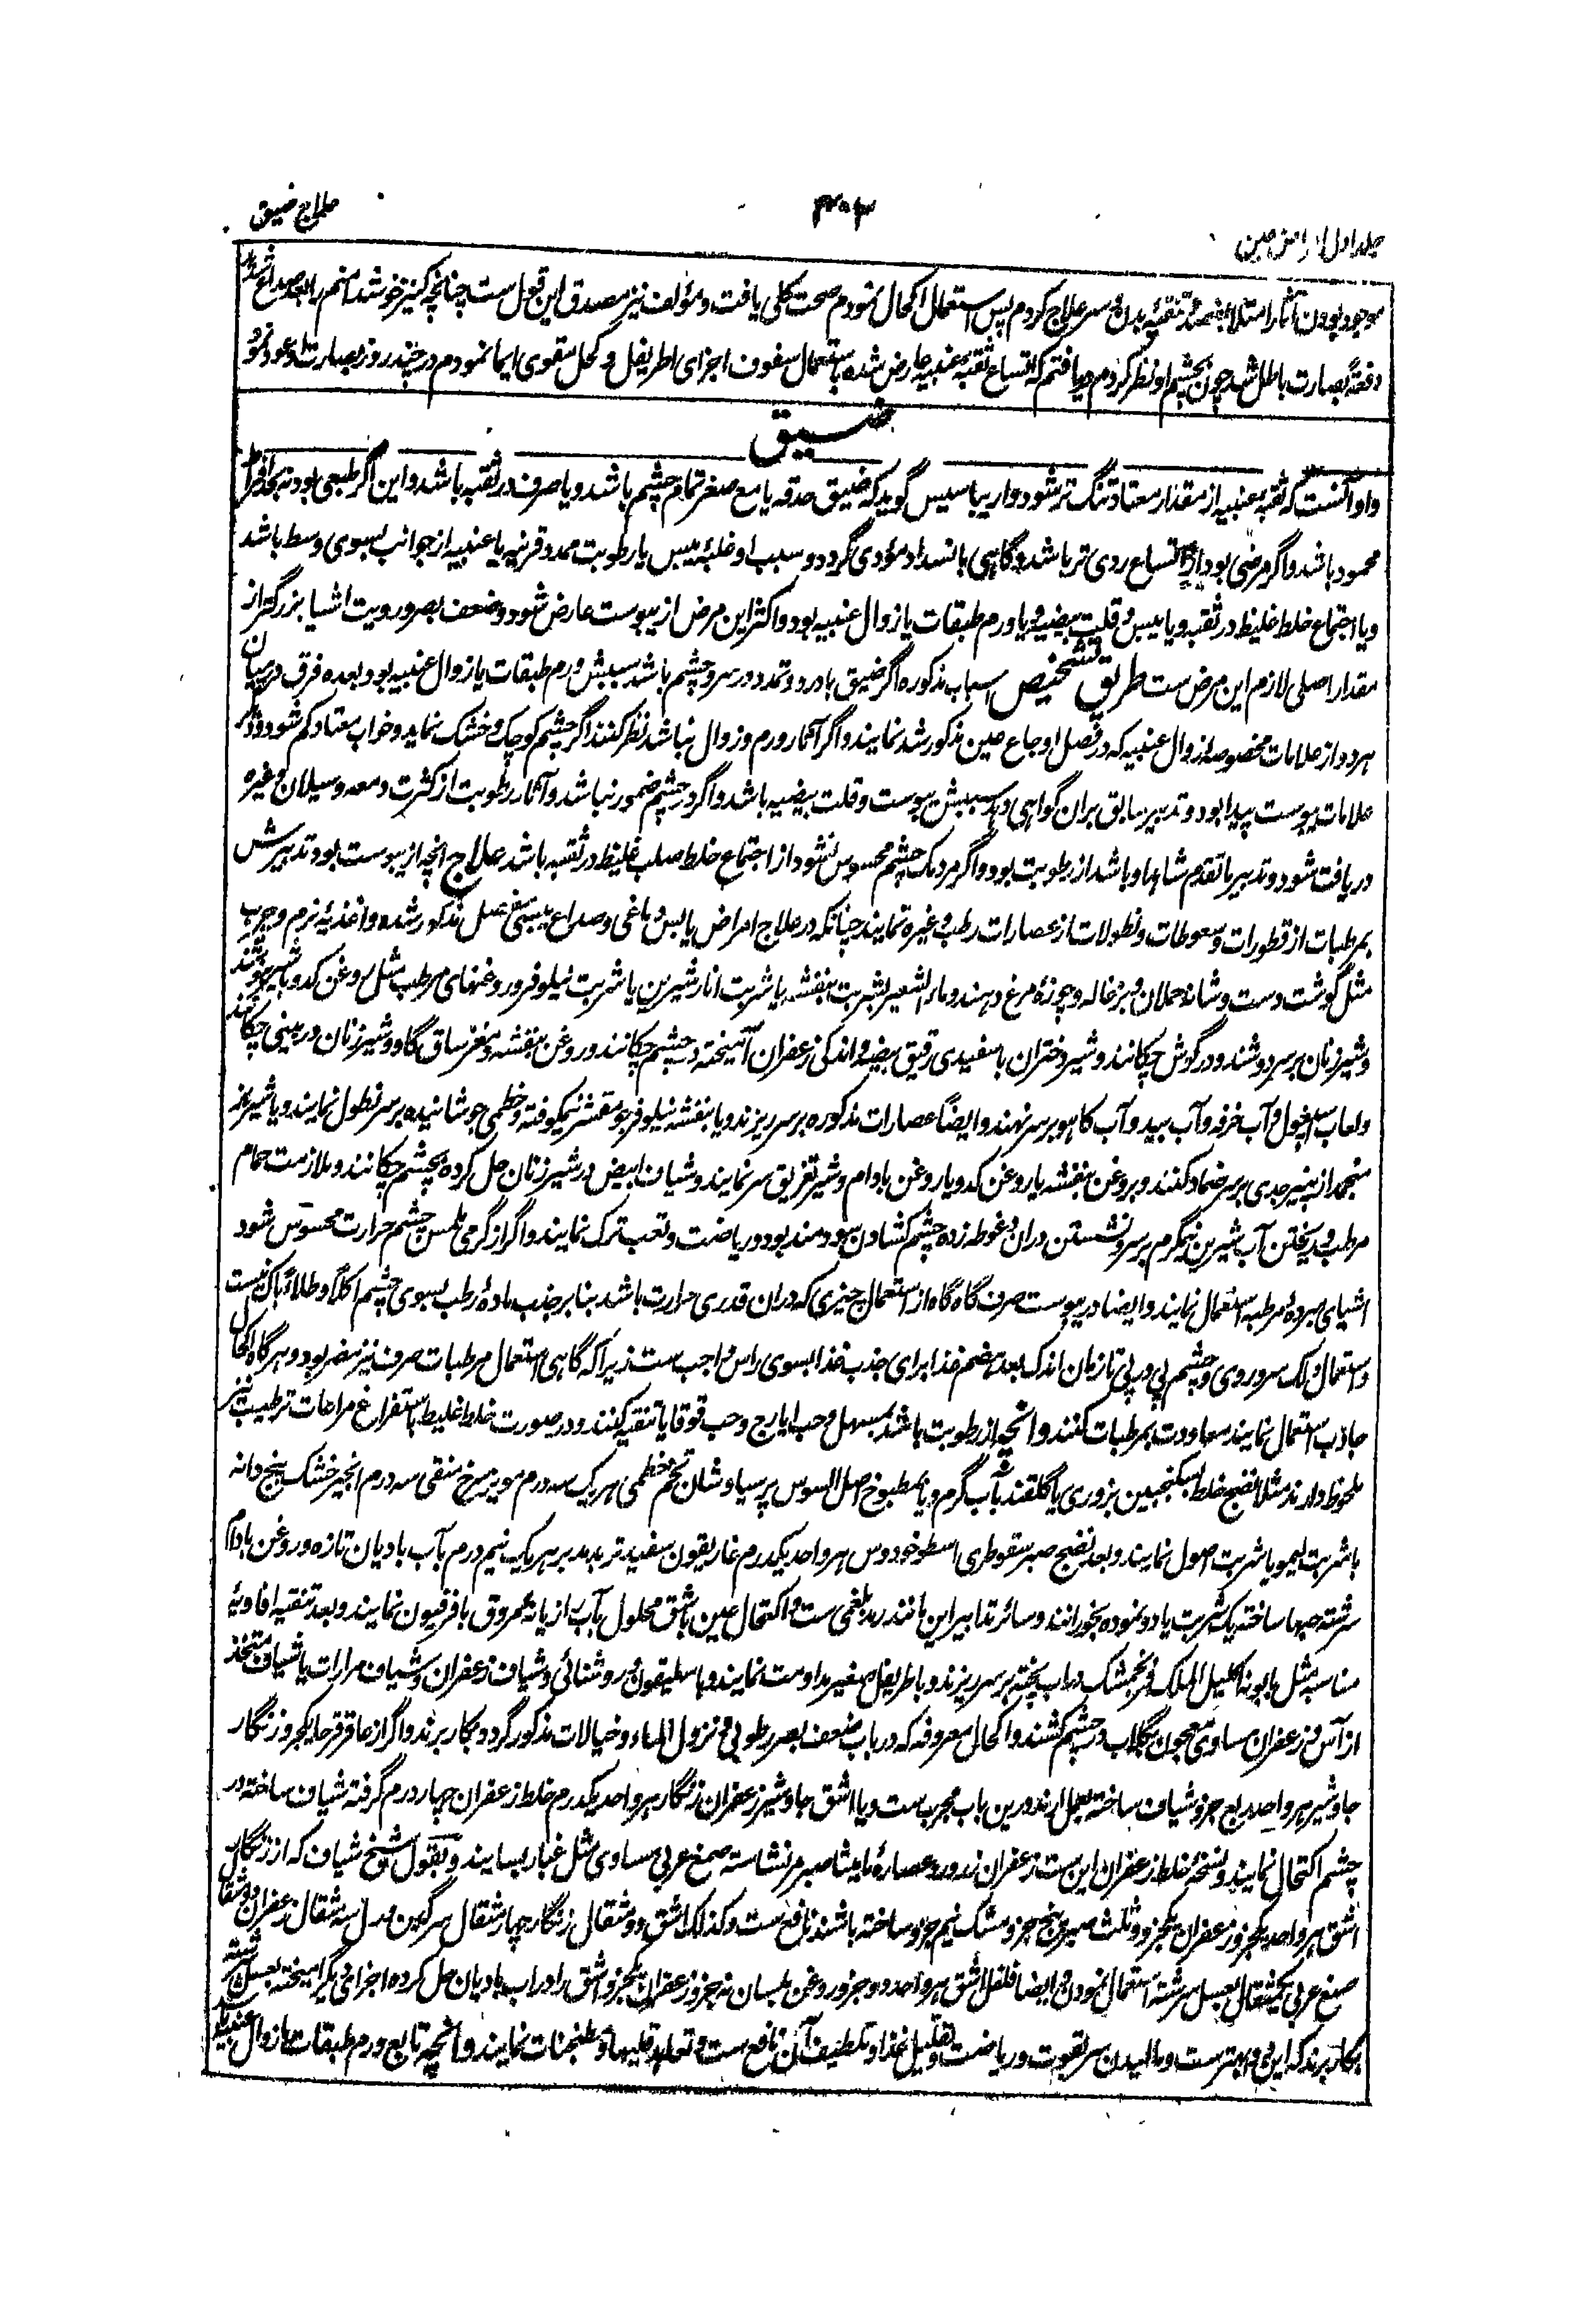 جلد اول امراض عین
۴۰۳
علاج ضیق
موجود بودن آثار امتلا بفصد و تنقیهٔ بدن و سر علاج کردم پس استعمال اکحال نمودم صحت کلی یافت و مؤلف نیز مصدق این قول ست چنانچه کنیز خوشدامنم را بعد صداع شدید
دفعةً بصارت باطل شد چون بچشم او نظر کردم دریافتم که اتساع ثقبهٔ عنبیه عارض شده باستعمال سفوف اجزای اطریفل و کحل مقوی ایما نمودم در چند روز بصارت او عود نمود
ضیق
و او آنست که ثقبهٔ عنبیه از مقدار معتاد تنگ تر شود و اریباسیس گوید که ضیق حدقه یا مع صغر تمام چشم باشد و یا صرف در ثقبه باشد و این اگر طبعی بود نه بحد افراط
محمود باشد و اگر مرضی بود از اتساع ردی تر باشد و گاهی بانسداد مؤدی گردد و سبب او غلبهٔ یبس یا رطوبت ممدد قرنیه یا عنبیه از جوانب بسوی وسط باشد
و یا اجتماع خلط غلیظ در ثقبه و یا یبس و قلت بیضیه و یا ورم طبقات یا زوال عنبیه بود و اکثر این مرض از یبوست عارض شود و ضعف بصر و رویت اشیا بزرگتر از
مقدار اصلی لازم این مرض ست طریق تشخیص اسباب مذکوره اگر ضیق با درد و تمدد در سر و چشم باشد سببش ورم طبقات یا زوال عنبیه بود بعده فرق درمیان
هر دو از علامات مخصوصه زوال عنبیه که در فصل اوجاع عین مذکور شد نمایند و اگر آثار ورم و زوال نباشد نظر کنند اگر چشم کوچک و خشک نماید و خواب معتاد کم شود و دیگر
علامات یبوست پیدا بود و تدبیر سابق بران گواهی دهد سببش یبوست و قلت بیضیه باشد و اگر در چشم ضمور نباشد و آثار رطوبت از کثرت دمعه و سیلان و غیره
دریافت شود و تدبیر ماتقدم شاهد او باشد از رطوبت بود و اگر مردمک چشم محسوس نشود از اجتماع خلط صلب غلیظ در ثقبه باشد علاج انچه از یبوست بود تدبیرش
بمرطبات از قطورات و سعوطات و نطولات از عصارات رطب و غیره نمایند چنانکه در علاج امراض یابس دماغی و صداع یبسی مفصل مذکور شده و اغذیهٔ نرم و چرب
مثل گوشت دست و شانه حملان و بزغاله و چوزهٔ مرغ دهند و ماء الشعیر بشربت بنفشه یا شربت انار شیرین یا شربت نیلوفر و روغنهای مرطب مثل روغن کدو با شیر بنوشند
و شیر زنان بر سر دوشند و در گوش چکانند و شیر دختران با سفیدی رقیق بیضه و اندکی زعفران آمیخته در چشم چکانند و روغن بنفشه و مغز ساق گاو و شیر زنان در بینی چکانند
و لعاب اسپغول و آب خرفه و آب بید و آب کاهو بر سر نهند و ایضاً عصارات مذکوره بر سر ریزند و یا بنفشه نیلوفر جو مقشر نیمکوفته و خطمی جوشانیده بر سر نطول نمایند و یا شیر بز
منجمد از پنیر جدی بر سر ضماد کنند و بروغن بنفشه یا روغن کدو یا روغن بادام و شیر تغریق سر نمایند و شیاف ابیض در شیر زنان حل کرده بچشم چکانند و ملازمت حمام
مرطب و ریختن آب شیرین نیمگرم بر سر و نشستن دران و غوطه زده چشم کشادن سودمند بود و ریاضت و تعب ترک نمایند و اگر از گرمی ملمس چشم حرارت محسوس شود
اشیای مبرده مرطبه استعمال نمایند و ایضا در یبوست صرف گاه گاه از استعمال چیزی که دران قدری حرارت باشد بنا بر جذب مادهٔ رطب بسوی چشم اکلاً و طلاءً باک نیست
و استعمال دلک سر و روی و چشم پی در پی تا زمان اندک بعد هضم غذا برای جذب غذا بسوی راس واجب ست زیراکه گاهی استعمال مرطبات صرف نیز مضر بود و هرگاه اکحال
جاذب استعمال نمایند معاودت بمرطبات کنند و انچه از رطوبت باشد بمسهل و حب ایارج و حب قوقایا تنقیه کنند و در صورت خلط غلیظ باستفراغ مراعات ترطیب نیز
ملحوظ دارند مثلاً نضج خلط بسکنجبین بزوری یا گلقند بآب گرم و یا مطبوخ اصل السوس پرسیاوشان تخم خطمی هر یک سه درم مویز سرخ منقی سه درم انجیر خشک پنج دانه
با شربت لیمو یا شربت اصول نمایند و بعد نضج صبر سقوطری اسطوخودوس هر واحد یکدرم غاریقون سفید تربد مدبر هر یک نیم درم بآب بادیان تازه و روغن بادام
سرشته حبها ساخته یک شربت یا دو نموده بخورانند و سائر تدابیر این مانند رمد بلغمی ست و اکتحال عین باشق محلول بآب رازیانه و عروق بافرفیون نمایند و بعد تنقیه افاویهٔ
مناسبه مثل بابونه اکلیل الملک فرنجمشک در آب پخته بر سر ریزند و باطریفل صغیر مداومت نمایند و باسلیقون و روشنائی و شیاف زعفران و شیاف مرارات یا شیاف متخذ
از آس و زعفران مساوی معجون بگلاب در چشم کشند و اکحال معروفه که در باب ضعف بصر رطوبی و نزول الماء و خیالات مذکور گردد بکار برند و اگر از عاقرقرحا یکجزو زنگار
جاوشیر هر واحد ربع جزو شیاف ساخته بعمل آرند درین باب مجرب ست و یا اشق جاوشیر زعفران زنگار هر واحد یکدرم خلط زعفران چهار درم گرفته شیاف ساخته در
چشم اکتحال نمایند و نسخه خلط زعفران این ست زعفران زرورد عصارهٔ مامیثا صبر مر نشاسته صمغ عربی مساوی مثل غبار بسایند و بقول شیخ شیاف که از زنگار
اشق هر واحد یکجزو زعفران یکجزو و ثلث صبر پنج جزو مشک نیم جزو ساخته باشند نافع ست و کذلک اشق دو مثقال زنگار چهار مثقال سرگین ورل سه مثقال زعفران دو مثقال
صمغ عربی یکمثقال بعسل سرشته استعمال نمودن و ایضا فلفل اشق هر واحد دو جزو روغن بلسان نه جزو زعفران یکجزو اشق را در آب بادیان حل کرده اجزای دیگر آمیخته بعسل سرشته
بکار برند که این بهتر ست و مالیدن سر بقوت و ریاضت و تقلیل غذا و تلطیف آن نافع ست و تعاهد قلیها و مطنجنات نمایند و انچه تابع ورم طبقات یا زوال عنبیه باشد